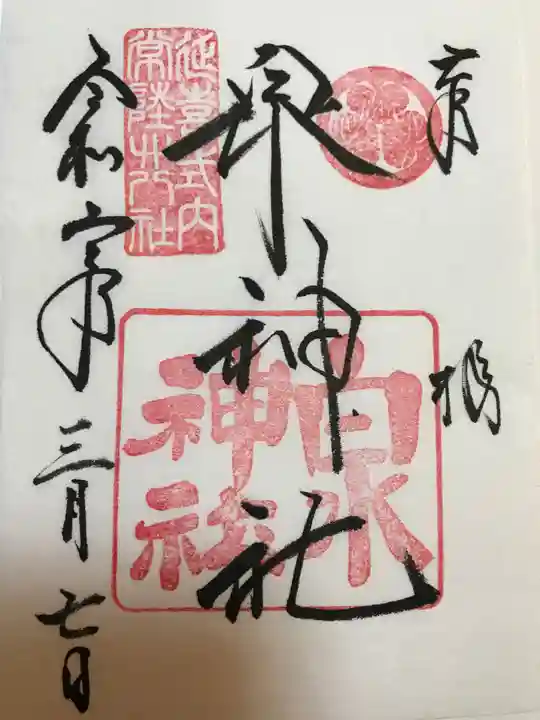 奉拝
泉神社
延喜式内
常陸廿八社
泉
神社
令和 年三月七日